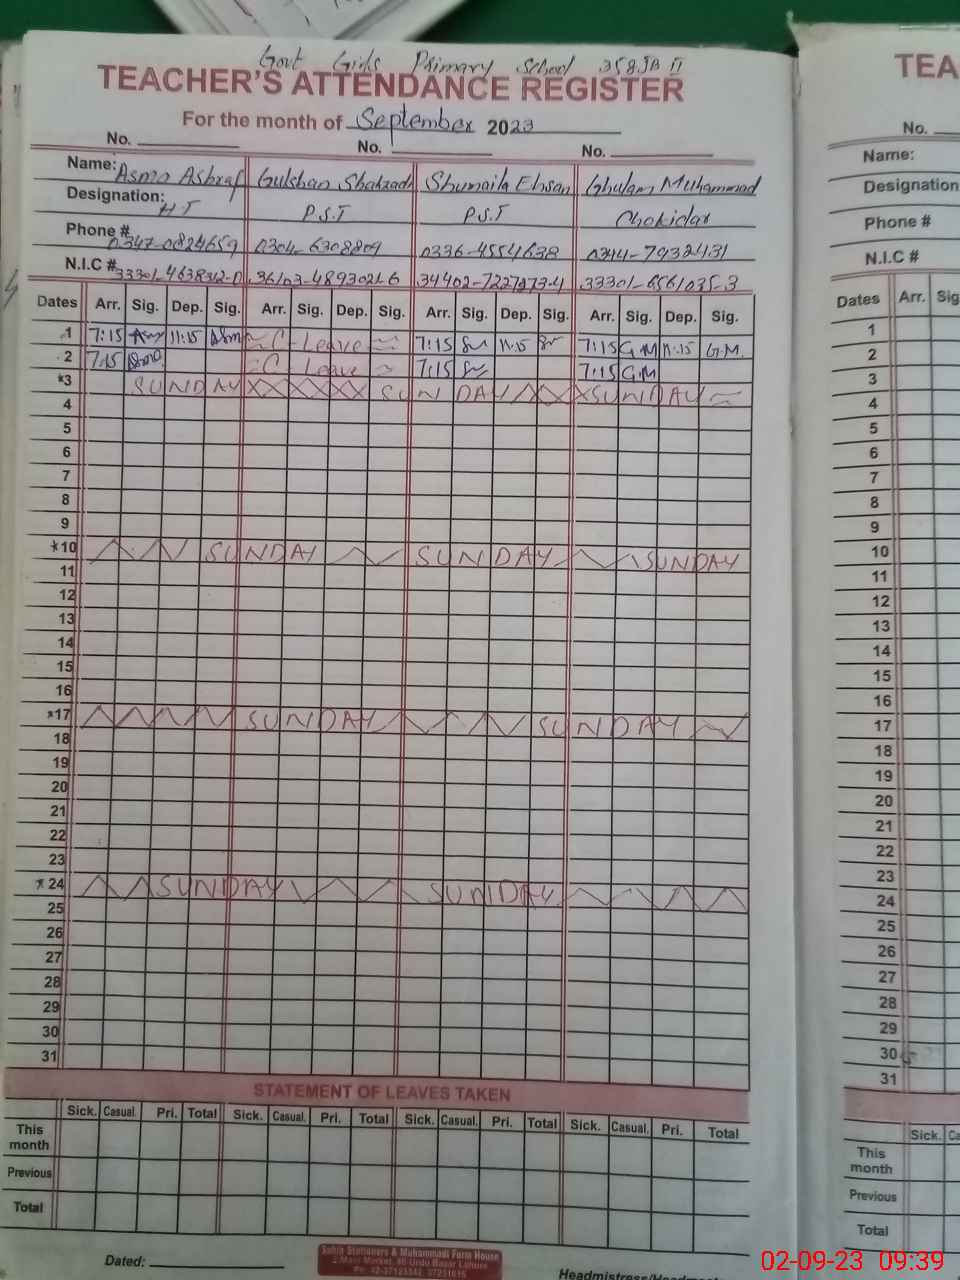 Govt Girls Primary School 358 JB II
TEACHER'S ATTENDANCE REGISTER
For the month of September 2023
No. No. No.
Name: Asma Ashraf Gulshan Shahzadi Shumaila Ehsan Ghulam Muhammad
Designation: HT P.S.T P.S.T Chokidar
Phone # 0347-0824659 0304-6308809 0336-4554638 0344-7932431
N.I.C # 33301-4638312-0 36103-4893021-6 34402-7227273-4 33301-6561035-3
Dates Arr. Sig. Dep. Sig. Arr. Sig. Dep. Sig. Arr. Sig. Dep. Sig. Arr. Sig. Dep. Sig.
1 7:15 11:15 Asma C - Leave 7:15 11:15 7:15 G.M 11:15 G.M.
2 7:15 Asma C - Leave 7:15 7:15 G.M
*3 SUNDAY SUNDAY SUNDAY
4
5
6
7
8
9
*10 SUNDAY SUNDAY SUNDAY
11
12
13
14
15
16
*17 SUNDAY SUNDAY
18
19
20
21
22
23
*24 SUNDAY SUNDAY
25
26
27
28
29
30
31
STATEMENT OF LEAVES TAKEN
Sick. Casual. Pri. Total Sick. Casual. Pri. Total Sick. Casual. Pri. Total Sick. Casual. Pri. Total
This
month
Previous
Total
Dated:
Sabir Stationers & Muhammadi Form House
2-Main Market, 40-Urdu Bazar Lahore
Headmistress/
TEA
No.
Name:
Designation
Phone #
N.I.C #
Dates Arr. Sig
1
2
3
4
5
6
7
8
9
10
11
12
13
14
15
16
17
18
19
20
21
22
23
24
25
26
27
28
29
30
31
Sick. Ca
This
month
Previous
Total
02-09-23 09:39